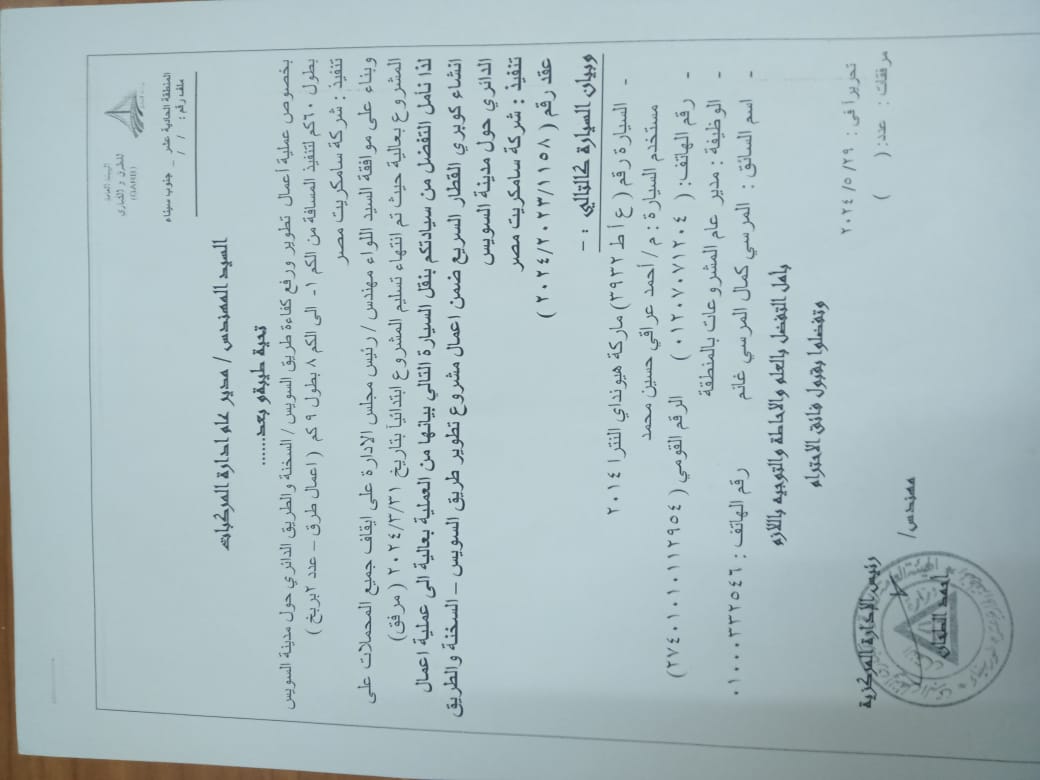 الهيئة العامة
للطرق و الكباري
(GARB)
المنطقة الحادية عشر _ جنوب سيناء
ملف رقم : / /
السيد المهندس / مدير عام ادارة المركبات
تحية طيبة و بعد......
بخصوص عملية أعمال تطوير ورفع كفاءة طريق السويس / السخنة والطريق الدائري حول مدينة السويس
بطول ٦٠كم لتنفيذ المسافة من الكم ١- الى الكم ٨ بطول ٩ كم ( اعمال طرق – عدد ٢بربخ )
تنفيذ : شركة سامكريت مصر
وبناء على موافقة السيد اللواء مهندس / رئيس مجلس الادارة على ايقاف جميع المحملات على
المشروع بعالية حيث تم انتهاء تسليم المشروع ابتدائيا بتاريخ ٢٠٢٤/٣/٣١ ( مرفق)
لذا نامل التفضل من سيادتكم بنقل السيارة التالي بيانها من العملية بعالية الى عملية اعمال
انشاء كوبري القطار السريع ضمن اعمال مشروع تطوير طريق السويس – السخنة والطريق
الدائري حول مدينة السويس
تنفيذ : شركة سامكريت مصر
عقد رقم ( ٢٠٢٤/٢٠٢٣/١١٥٨ )
وبيان السيارة كالتالي : -
- السيارة رقم ( ع أ ط ٣٩٣٢) ماركة هيونداي النترا ٢٠١٤
مستخدم السيارة : م/ أحمد عراقي حسين محمد
- رقم الهاتف: ( ٠١٢٠٧٠٧١٢٠٤ ) الرقم القومي ( ٢٧٤٠١٠١٠١١٢٩٥٤)
- الوظيفة : مدير عام المشروعات بالمنطقة
- اسم السائق : المرسي كمال المرسي غانم رقم الهاتف : ٠١٠٠٠٣٣٢٥٤٦
يامل التفضل بالعلم والاحاطة والتوجيه باللازم
وتفضلوا بقبول فائق الاحترام
تحريرا في : ٢٠٢٤/٥/٢٩
مرفقات : عدد: ( )
رئيس الإدارة المركزية
مهندس/
احمد الطحان